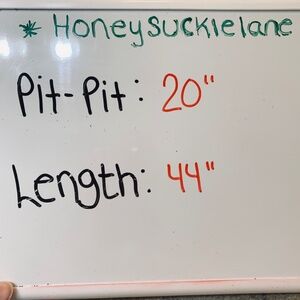 * Honeysucklelane
Pit-Pit: 20"
Length: 44"